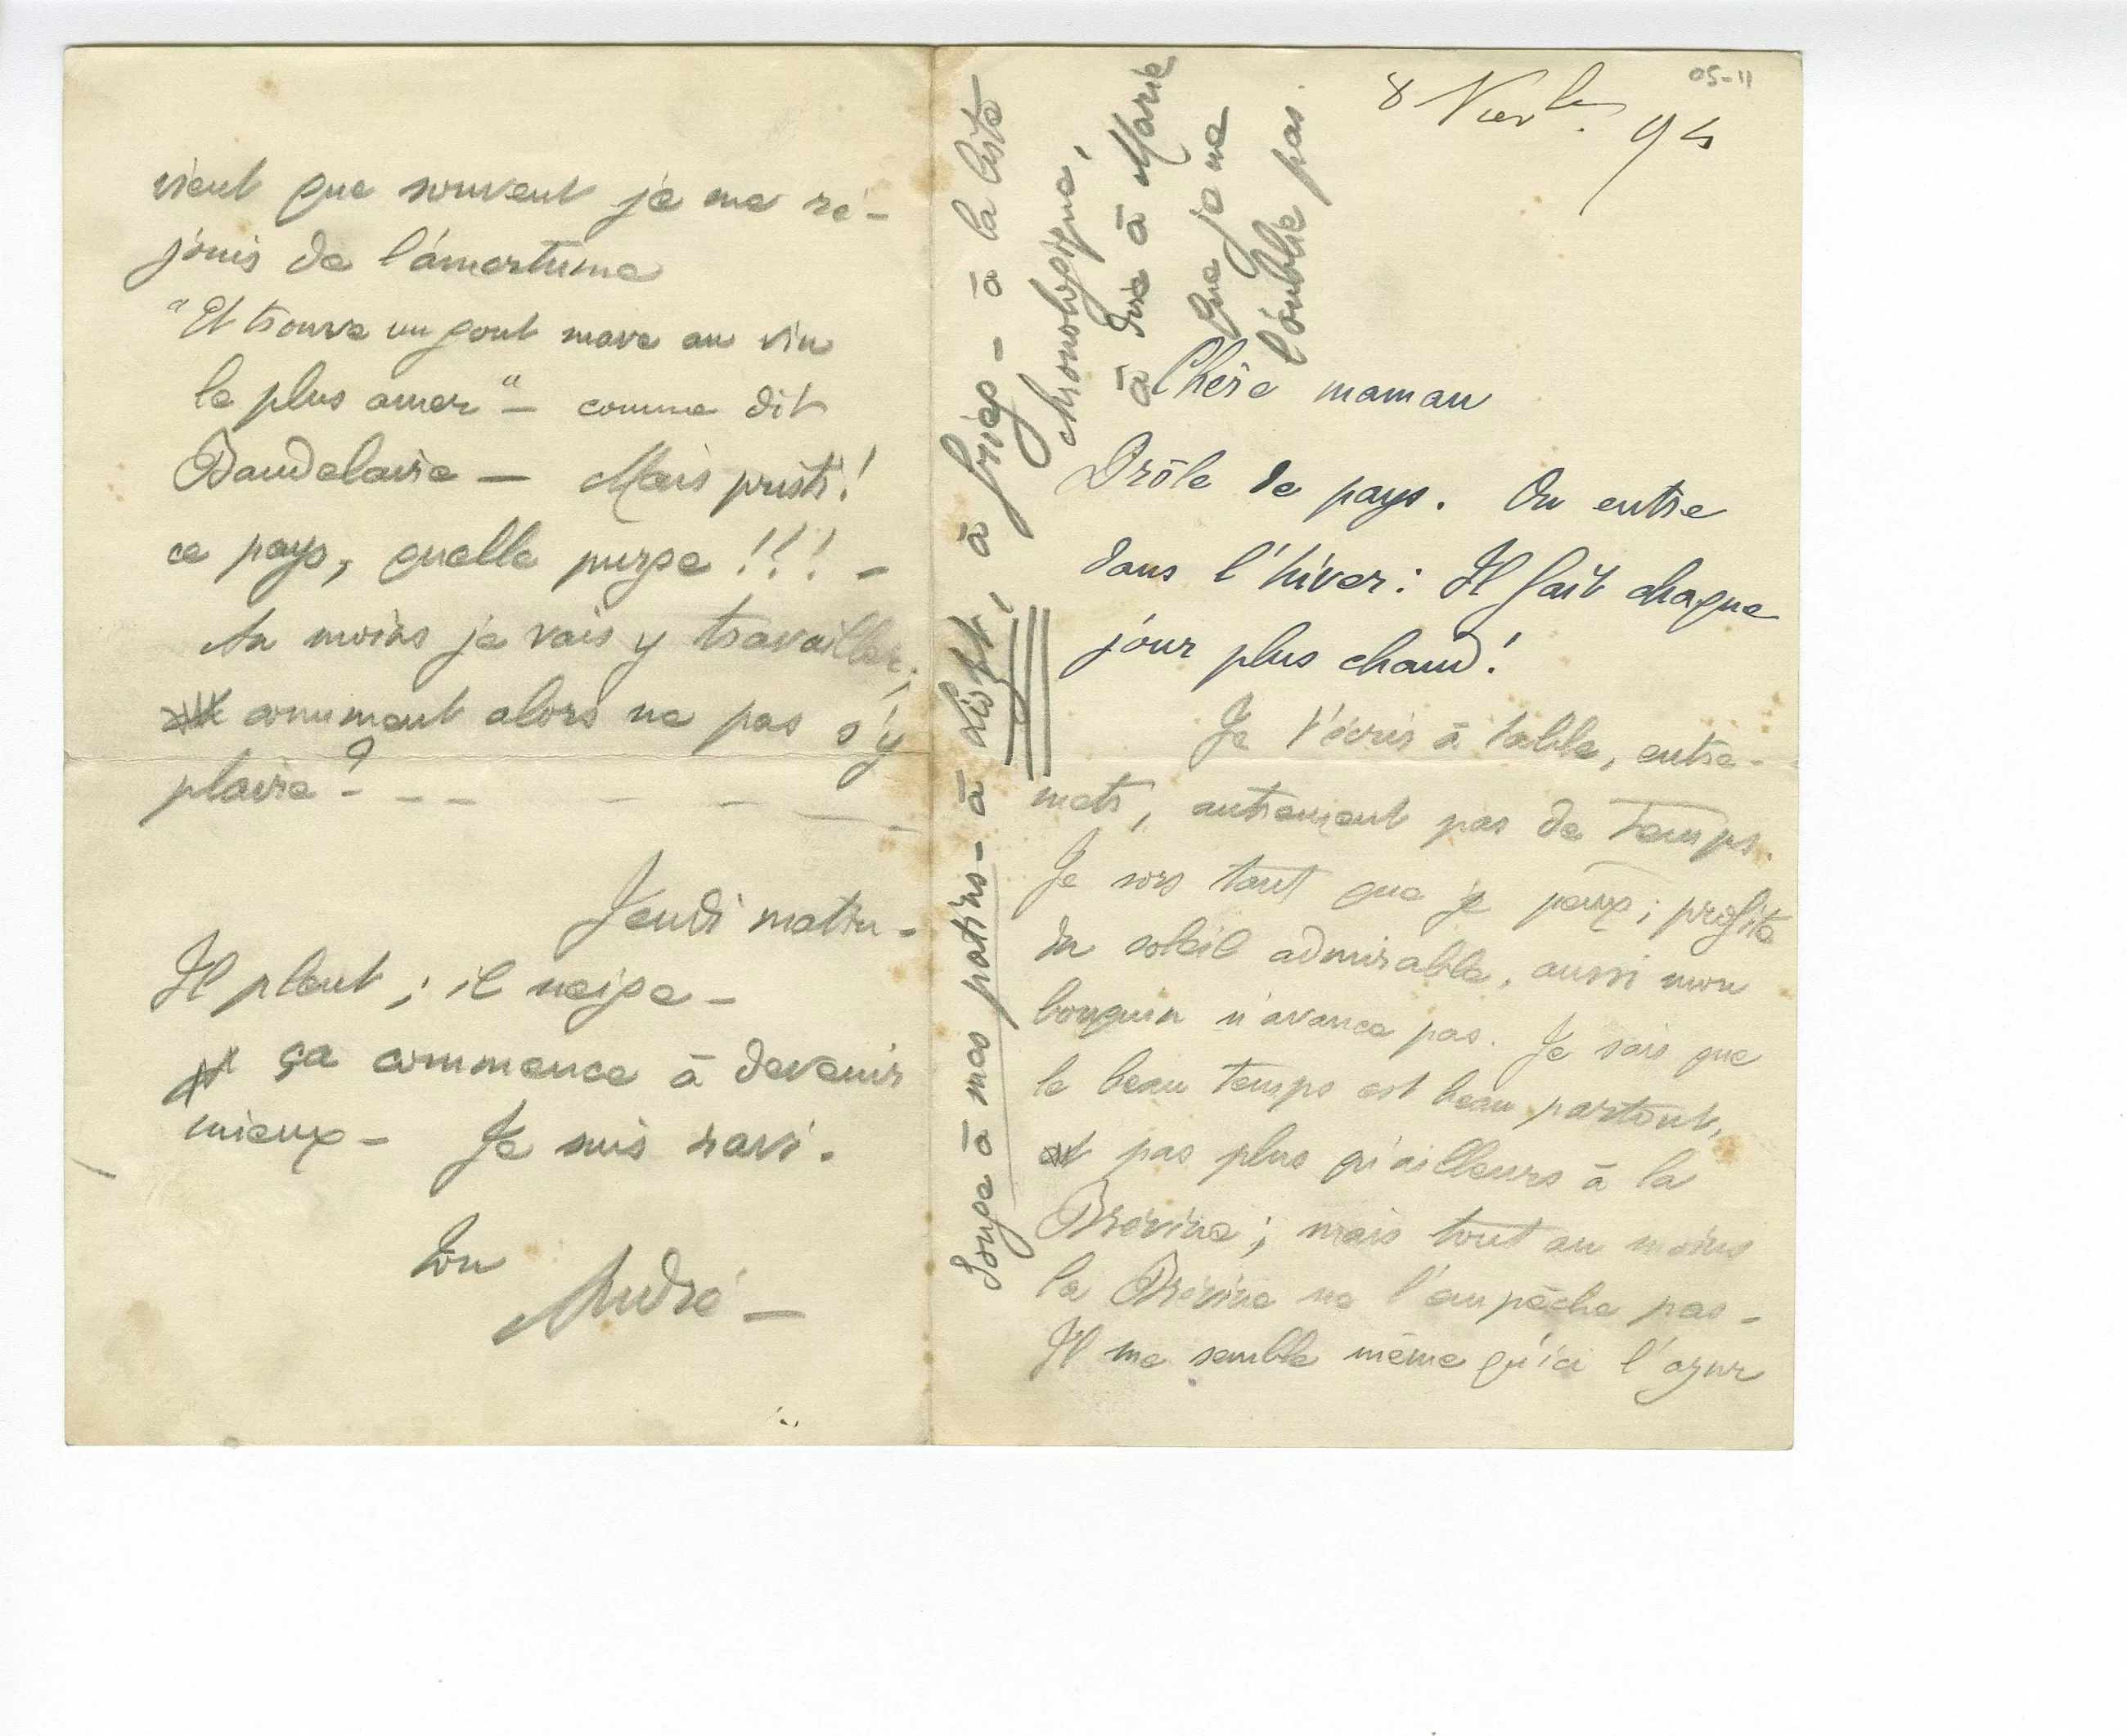 05-11
8 Novbre. 94
Chère maman
Drôle de pays. On entre
dans l'hiver : Il fait chaque
jour plus chaud !
Je t'écris à table, entre-
mets, autrement pas de temps.
Je sors tant que je peux ; profite
du soleil admirable, aussi mon
bouquin n'avance pas. Je sais que
le beau temps est beau partout,
et pas plus qu'ailleurs à la
Brévine ; mais tout au moins
la Brévine ne l'empêche pas -
Il me semble même qu'ici l'azur
Songe à mes patins - à Liszt, à Grieg - à la liste
chronologique,
à dire à Marie
que je ne
l'oublie pas.
vient que souvent je me ré-
jouis de l'amertume
"Et trouve un gout suave au vin
le plus amer" - comme dit
Baudelaire — Mais pristi !
ce pays, quelle purge !!! -
Au moins je vais y travailler ;
comment alors ne pas s'y
plaire ? - - -
Jeudi matin -
Il pleut ; il neige -
ça commence à devenir
mieux - Je suis ravi.
Ton
André —